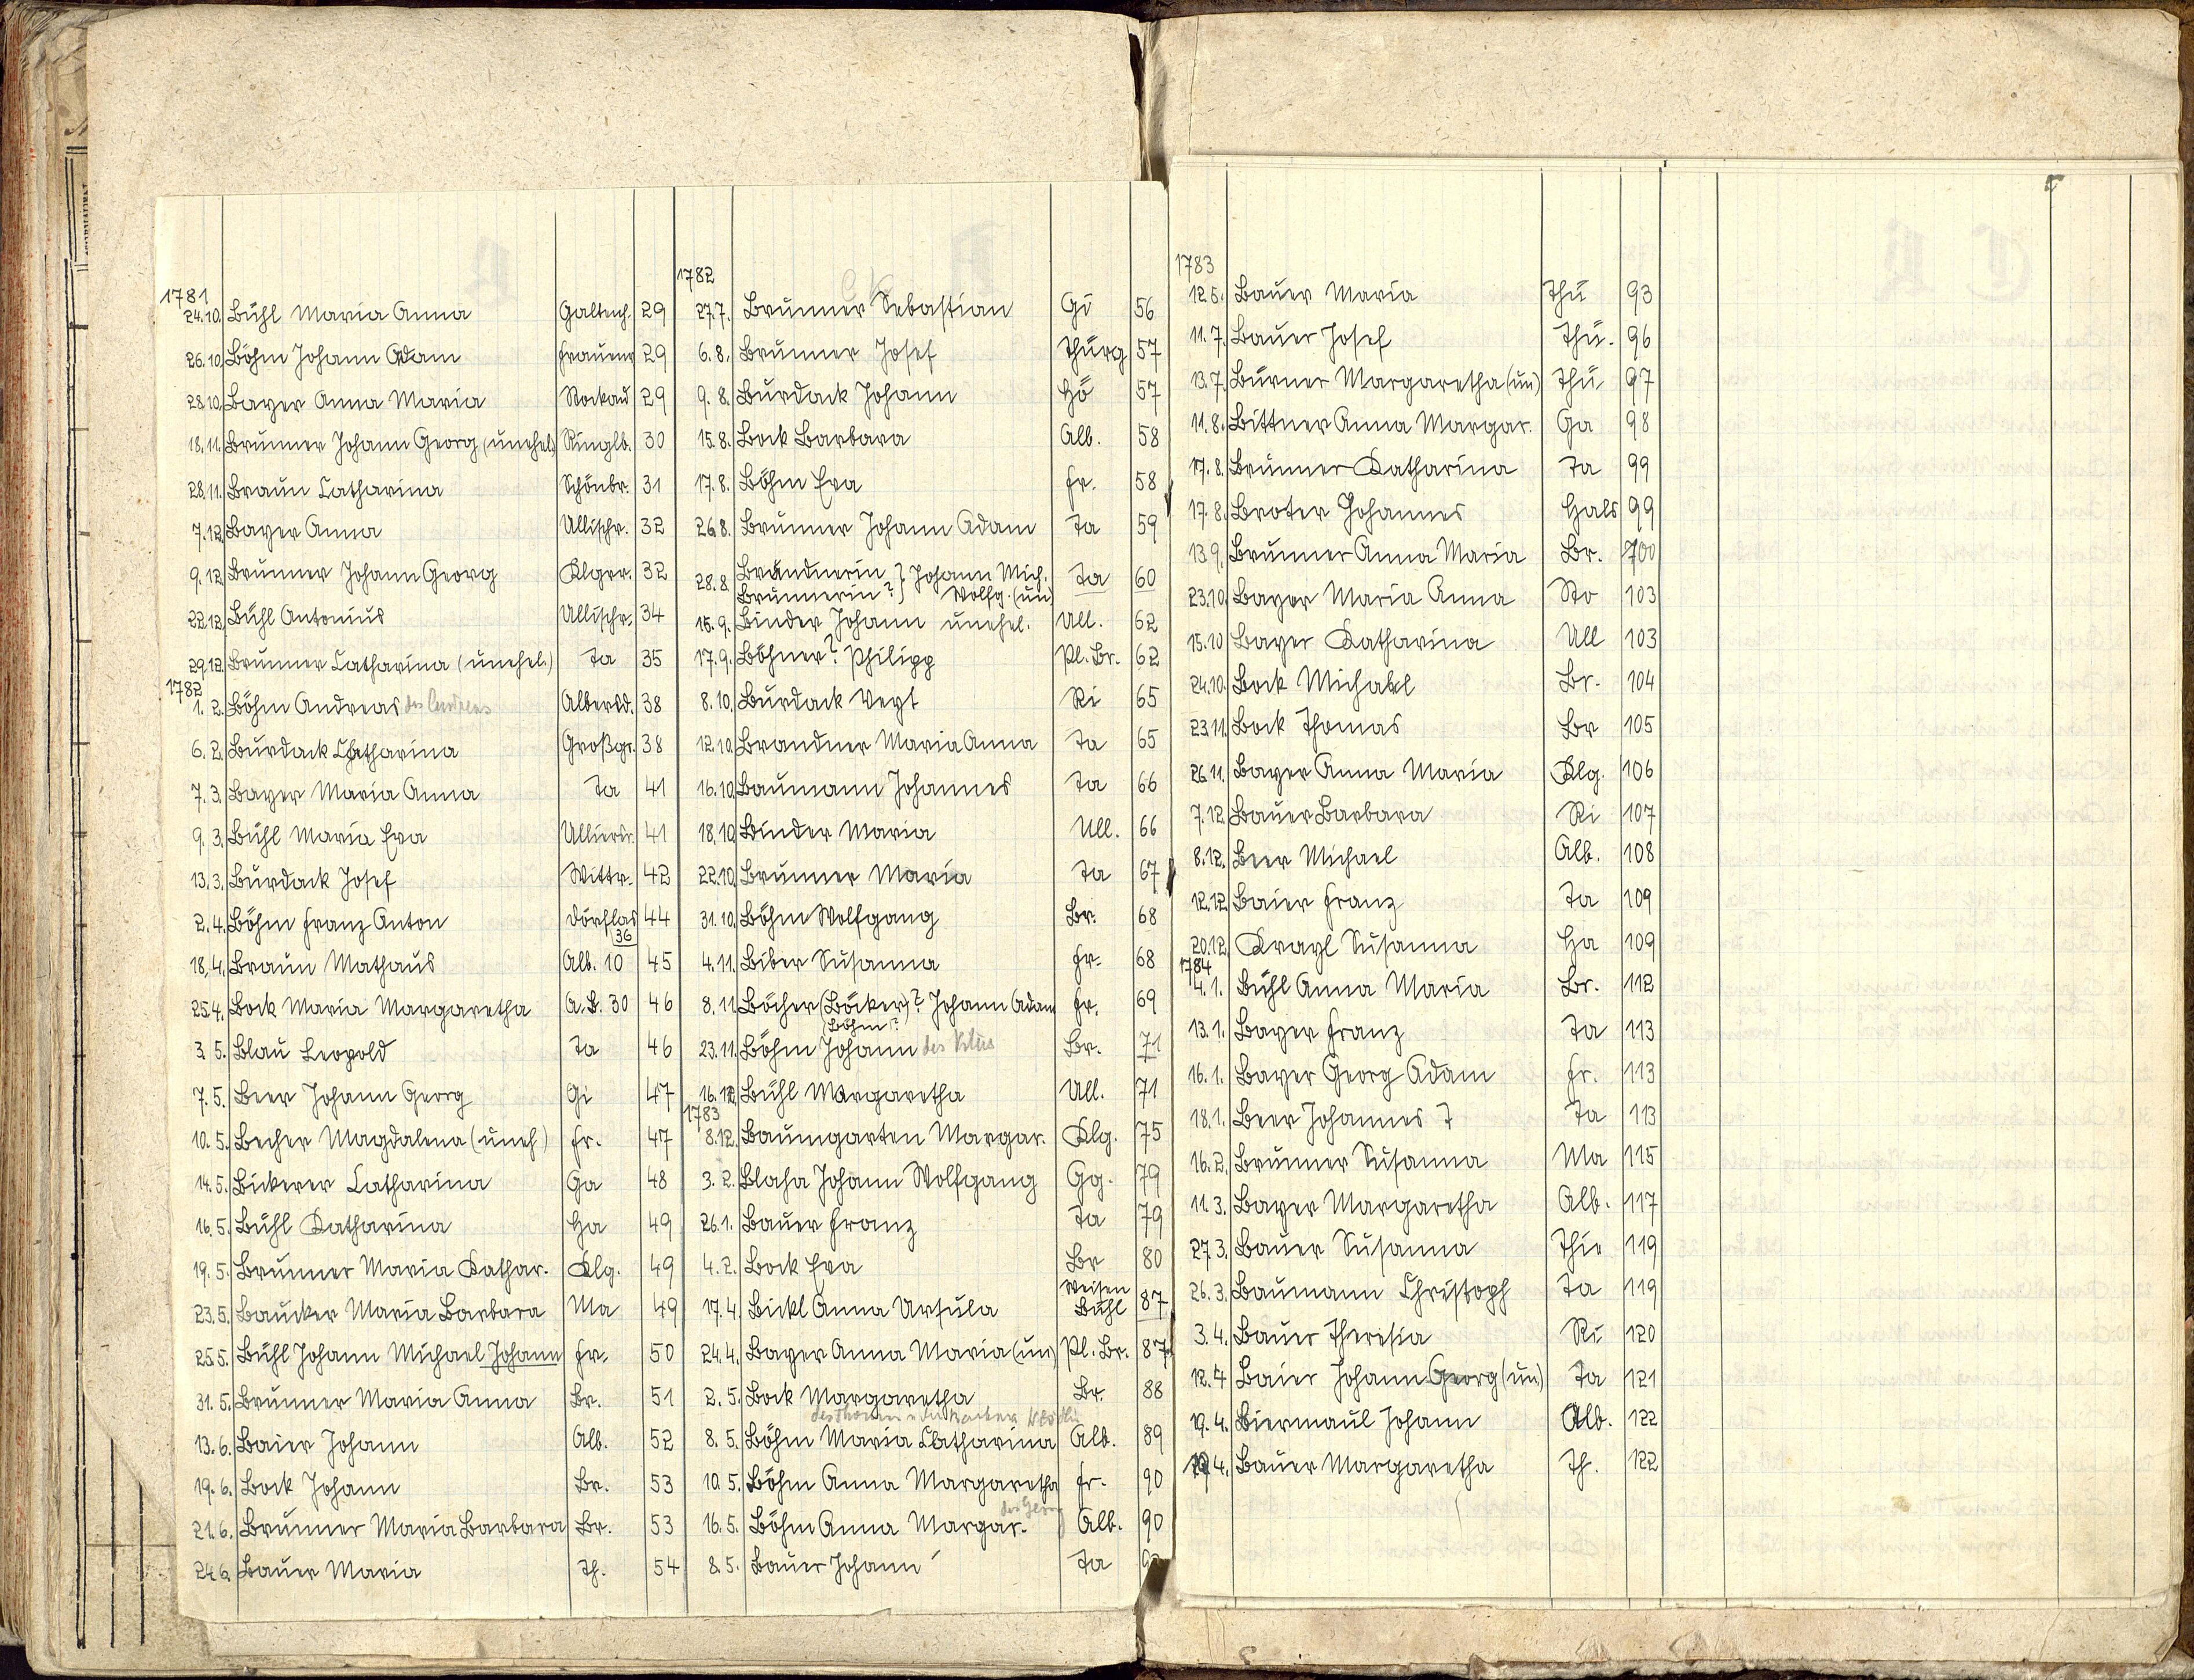 1781
24.10. Bühl Maria Anna Galtenh. 29
26.10. Böhm Johann Adam Frauenr 29
28.10. Bayer Anna Maria Stockau 29
18.11. Brunner Johann Georg (unehel.) Ringlb. 30
28.11. Braun Catharina Schönbr. 31
7.12. Bayer Anna Ullischr. 32
9.12. Brunner Johann Georg Klgrr. 32
22.12. Bühl Antonius Ullischr. 34
29.12. Brunner Catharina (unehel.) Ta 35
1782
1. 2. Böhm Andreas des Andreas Albersd. 38
6. 2. Burdack Catharina Großgr. 38
7. 3. Bayer Maria Anna Ta 41
9. 3. Bühl Maria Eva Ulliersr. 41
13. 3. Burdack Josef Wittr. 42
2. 4. Böhm Franz Anton Dörflas 36 44
18. 4. Braun Mathaus Alb. 10 45
25.4. Bock Maria Margaretha A.B. 30 46
3. 5. Blau Leopold Ta 46
7. 5. Beer Johann Georg Gi 47
10. 5. Becher Magdalena (uneh) Fr. 47
14. 5. Bickerer Catharina Ga 48
16. 5. Bühl Katharina Ha 49
19. 5. Brunner Maria Kathar. Klg. 49
23. 5. Baucker Maria Barbara Ma 49
25.5. Bühl Johann Michael Johann Fr. 50
31. 5. Brunner Maria Anna Br. 51
13. 6. Baier Johann Alb. 52
19. 6. Bock Johann Br. 53
21. 6. Brunner Maria Barbara Br. 53
24.6. Bauer Maria Th. 54
1782
27.7. Brunner Sebastian Gi 56
6. 8. Brunner Josef Thurg 57
9. 8. Burdack Johann Hö 57
15. 8. Bock Barbara Alb. 58
17. 8. Böhm Eva Fr. 58
26.8. Brunner Johann Adam Ta 59
28.8. Brandnerin } Johann Mich. Ta 60
Brunnerin? } Wolfg. (un)
15. 9. Binder Johann unehel. Ull. 62
17. 9. Böhner? Philipp Pl. Br. 62
8. 10. Burdack Veyt Ri 65
12.10. Brandner Maria Anna Ta 65
16.10. Baumann Johannes Ta 66
18.10. Binder Maria Ull. 66
22.10. Brunner Maria Ta 67
31.10. Böhm Wolfgang Br. 68
4. 11. Biber Susanna Fr. 68
8. 11 Böcher (Böcker)? Johann Adam Fr. 69
(Böhm?
23.11. Böhm Johann des Br. 71
16.12. Bühl Margaretha Ull. 71
1783
8.12. Baumgarten Margar. Klg. 75
3. 2. Blaha Johann Wolfgang Gg. 79
26.1. Bauer Franz Ta 79
4. 2. Bock Eva Br 80
17. 4. Bickl Anna Ursula Weisen Bühl 87
24.4. Bayer Anna Maria (un) Pl. Br. 87
2. 5. Bock Margaretha Br. 88
8. 5. Böhm Maria Catharina Alb. 89
10. 5. Böhm Anna Margaretha Fr. 90
des Georg
16. 5. Böhm Anna Margar. Alb. 90
8. 5. Bauer Johann Ta
1783
12.5. Bauer Maria Thu 93
11. 7. Bauer Josef Thu. 96
13.7. Burner Margaretha (un) Thu 97
11. 8. Bittner Anna Margar. Ga 98
17. 8. Brunner Katharina Ta 99
17. 8. Broter Johannes Hals 99
13.9. Brunner Anna Maria Br. 100
23.10. Bayer Maria Anna Sto 103
15.10 Bayer Katharina Ull 103
24.10. Bock Michael Br. 104
23.11. Bock Thomas Br 105
26.11. Bayer Anna Maria Klg. 106
7.12. Bauer Barbara Ri 107
8.12. Beer Michael Alb. 108
12.12 Baier Franz Ta 109
20.12. Krayl Susanna Ha 109
1784
4. 1. Bühl Anna Maria Br. 112
13. 1. Bayer Franz Ta 113
16. 1. Bayer Georg Adam Fr. 113
18.1. Beer Johannes J Ta 113
16. 2. Brunner Susanna Ma 115
11. 3. Bayer Margaretha Alb. 117
27. 3. Bauer Susanna Thie 119
26. 3. Baumann Christoph Ta 119
3. 4. Bauer Theresia Ri 120
12. 4 Baier Johann Georg (un) Ta 121
19. 4. Biermaul Johann Alb. 122
4. Bauer Margaretha Th. 122